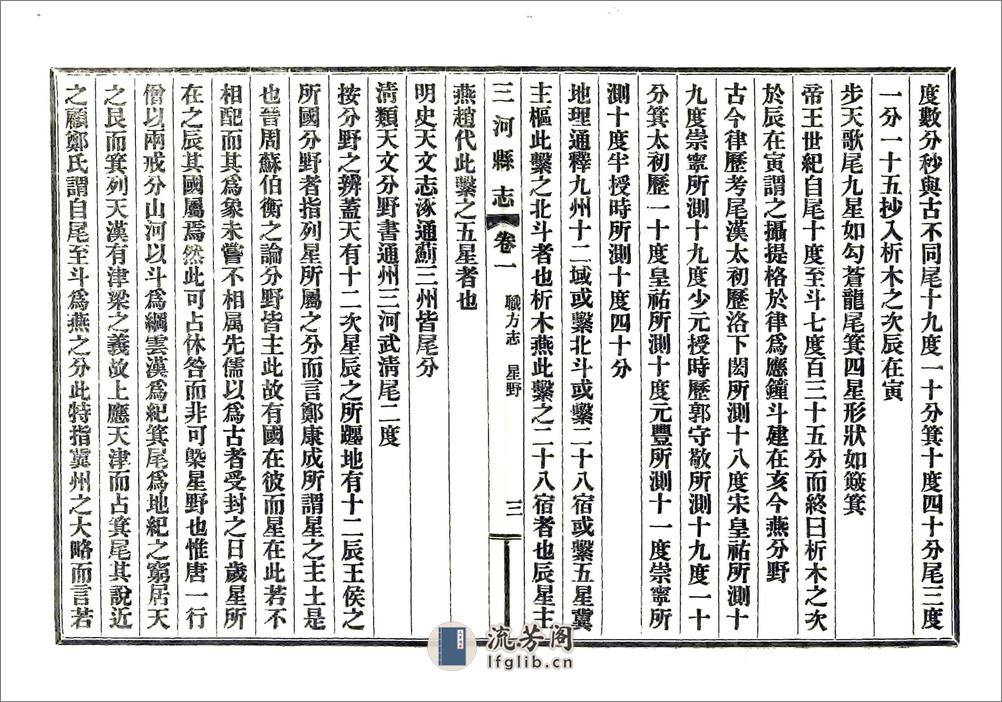 度數分秒與古不同尾十九度一十分箕十度四十分尾三度
一分一十五抄入析木之次辰在寅
步天歌尾九星如勾蒼龍尾箕四星形狀如簸箕
帝王世紀自尾十度至斗七度百三十五分而終曰析木之次
於辰在寅謂之攝提格於律爲應鐘斗建在亥今燕分野
古今律歷考尾漢太初歷洛下閎所測十八度宋皇祐所測十
九度崇寧所測十九度少元授時歷郭守敬所測十九度一十
分箕太初歷一十度皇祐所測十度元豐所測十一度崇寧所
測十度半授時所測十度四十分
地理通釋九州十二域或繫北斗或繫二十八宿或繫五星冀
主樞此繫之北斗者也析木燕此繫之二十八宿者也辰星主
燕趙代此繫之五星者也
三河縣志
卷一
職方志 星野
三
明史天文志涿通薊三州皆尾分
淸類天文分野書通州三河武淸尾二度
按分野之辨蓋天有十二次星辰之所躔地有十二辰王侯之
所國分野者指列星所屬之分而言鄭康成所謂星之主土是
也晉周蘇伯衡之論分野皆主此故有國在彼而星在此若不
相配而其爲象未嘗不相属先儒以爲古者受封之日歲星所
在之辰其國屬焉然此可占休咎而非可槩星野也惟唐一行
僧以兩戒分山河以斗爲綱雲漢爲紀箕尾爲地紀之窮居天
之艮而箕列天漢有津梁之義故上應天津而占箕尾其說近
之顧鄭氏謂自尾至斗爲燕之分此特指冀州之大略而言若
流芳阁
lfglib.cn